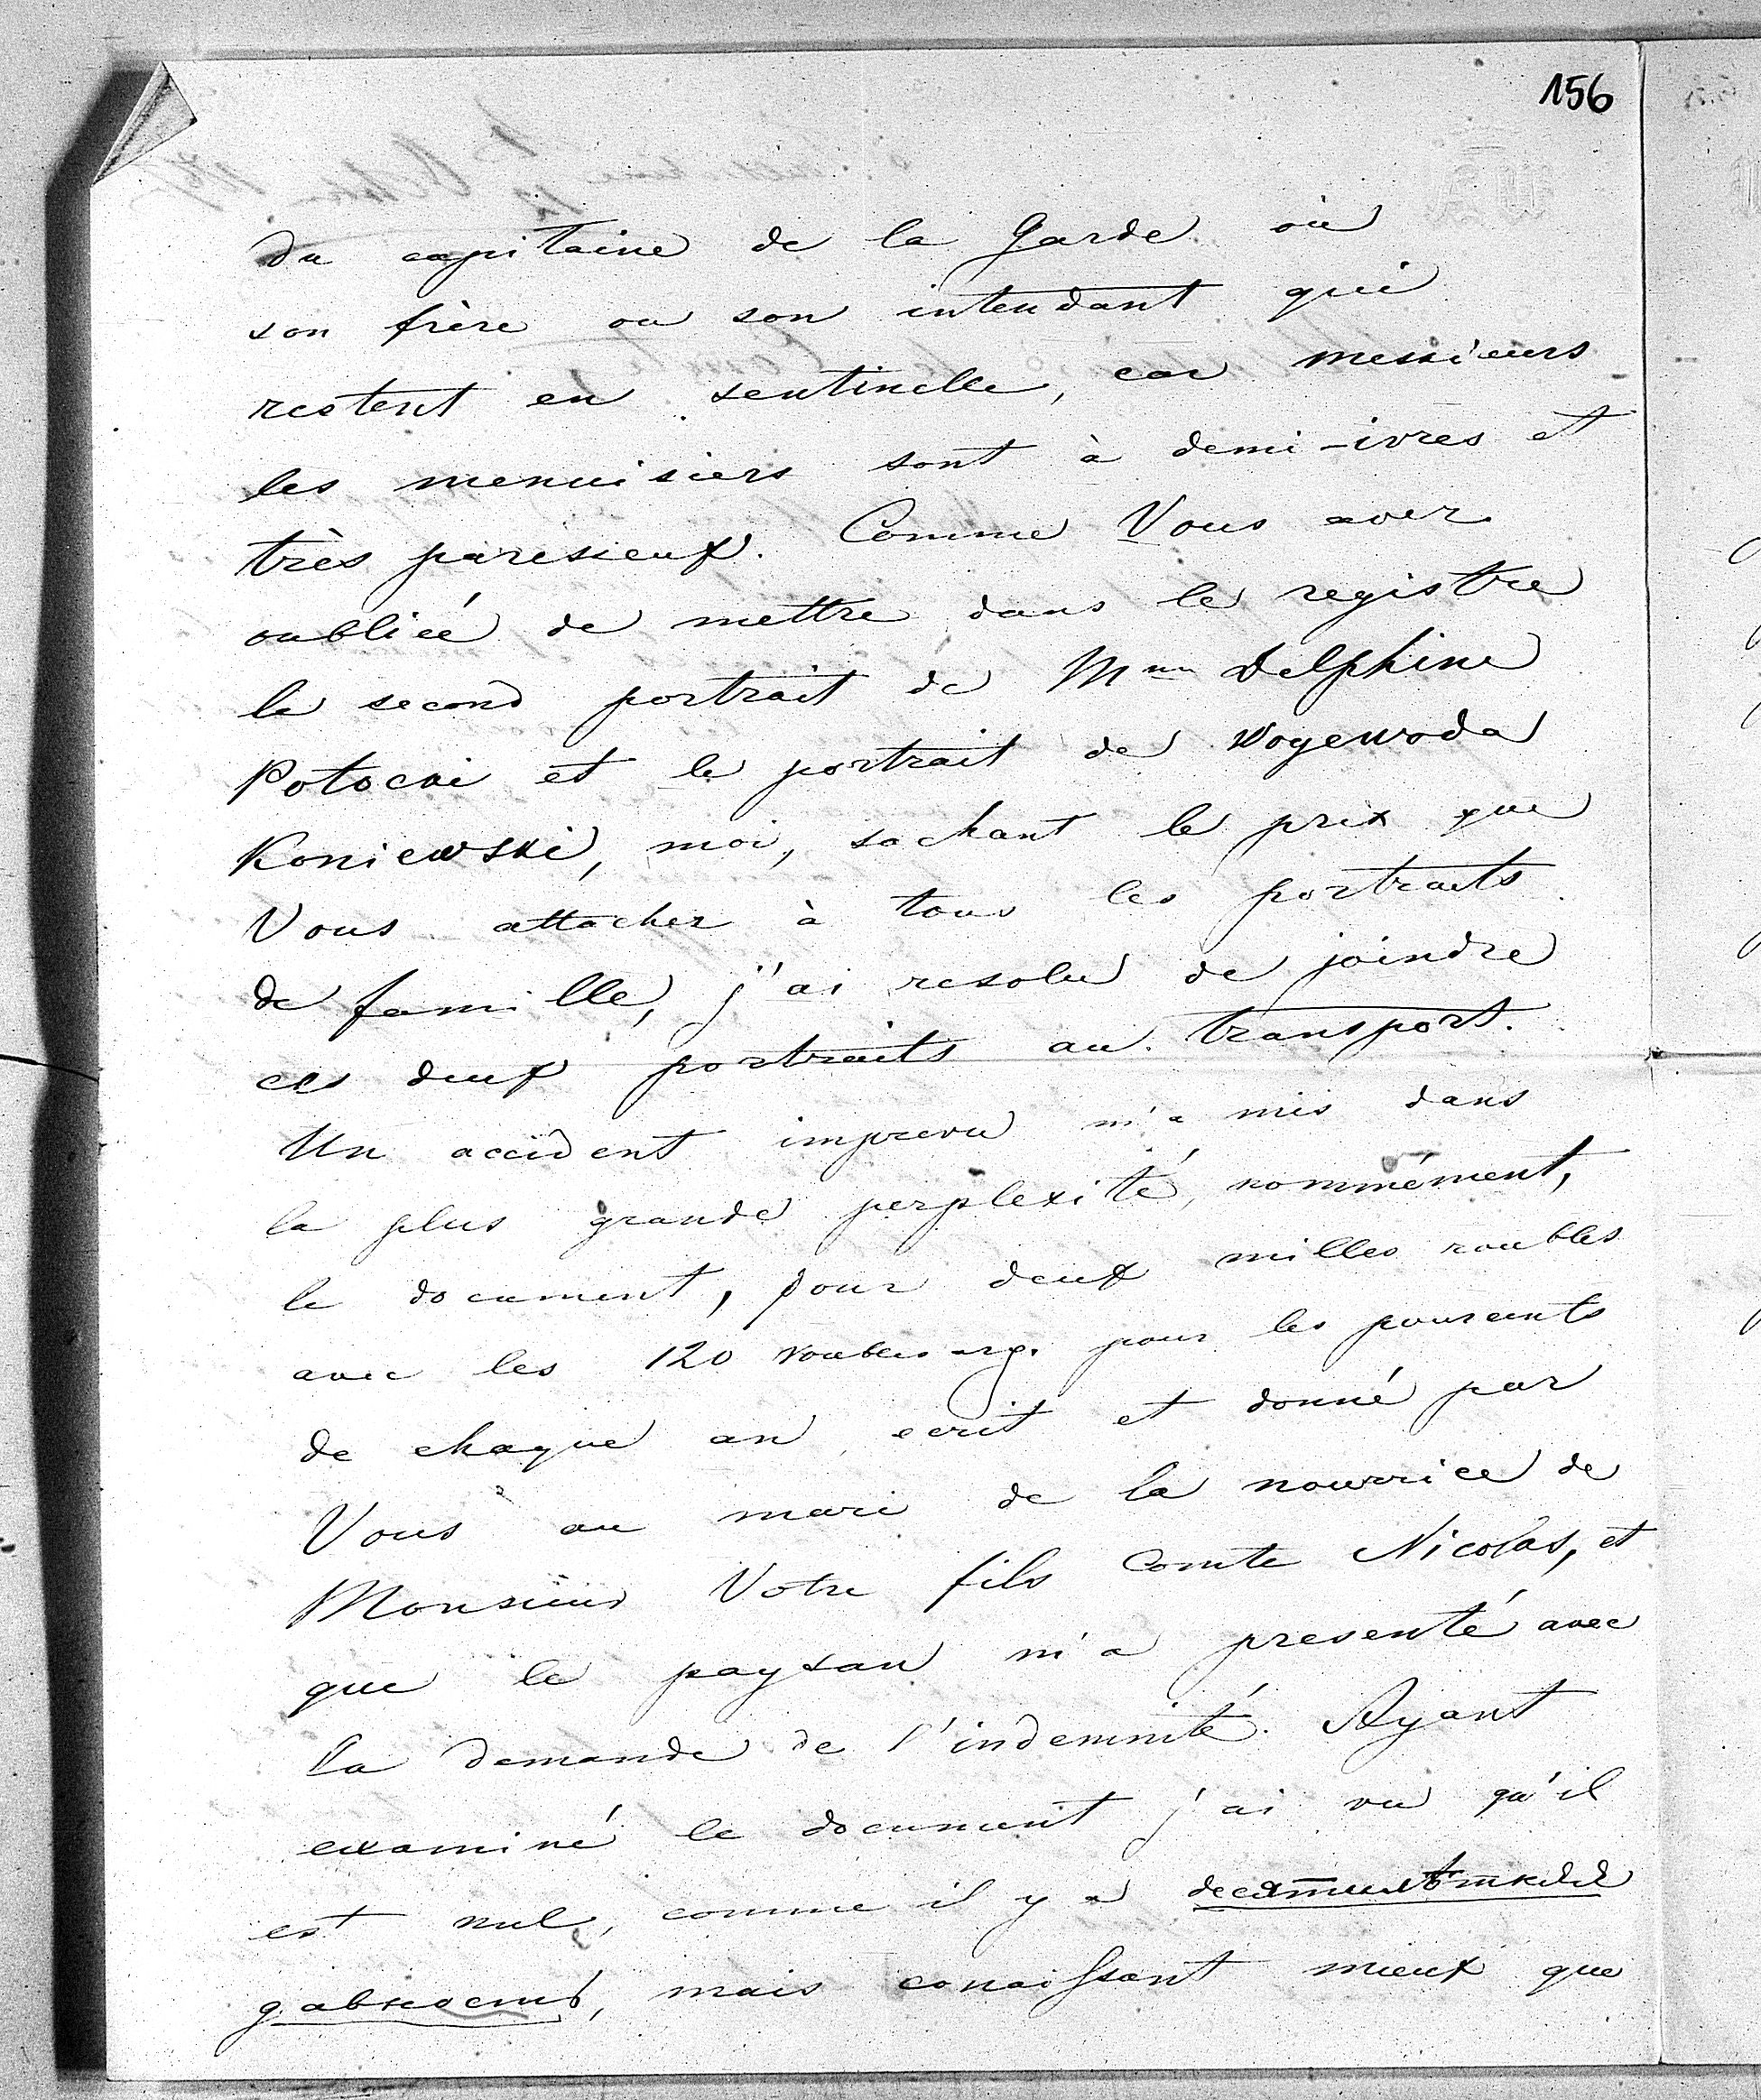 156
du capitaine de la Garde où
son frère ou son intendant qui
restent en sentinelle, car messieurs
les menuisiers sont à demi-ivres et
très paresieux. Comme Vous avez
oubliéé de mettre dans le registre
le second portrait de Mme Delphine
Potocki et le portrait de Woyewoda
Koniewski, moi, sachant le prix que
Vous attachez à tous les portraits
de famille, j'ai resolu de joindre
ces deux portraits au transport.
Un accident imprevu m'a mis dans
la plus grande perplexité, nommément,
le document, pour deux milles roubles
avec les 120 roubles arg. pour les pourcents
de chaque an, ecrit et donné par
Vous au mari de la nourrice de
Monsieur Votre fils Comte Nicolas, et
que le paysan m'a presenté avec
la demande de l'indemnité. Ayant
examiné le document j'ai vu qu'il
est nul, comme il y a
, mais conaissant mieux que